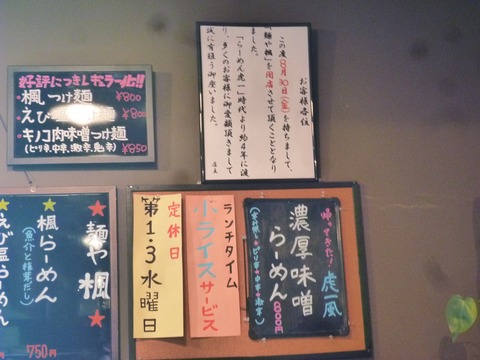 お客様各位
この度8月30日(金)を持ちまして、
「麺や楓」を閉店させて頂くこととなり
ました。
「らーめん虎一」時代より約4年に渡
り、多くのお客様に御愛顧頂きまして
誠に有難う御座いました。
店主
好評につきレギュラー化!!
楓つけ麺 ¥800
えび つけ麺 ¥800
キノコ肉味噌つけ麺
(ピリ辛、中辛、激辛、鬼辛) ¥850
帰ってきた!虎一風
濃厚味噌
らーめん 800円
ランチタイム
小ライスサービス
定休日
第1・3水曜日
麺や楓
楓らーめん
(魚介と椎茸だし)
750円
えび塩らーめん